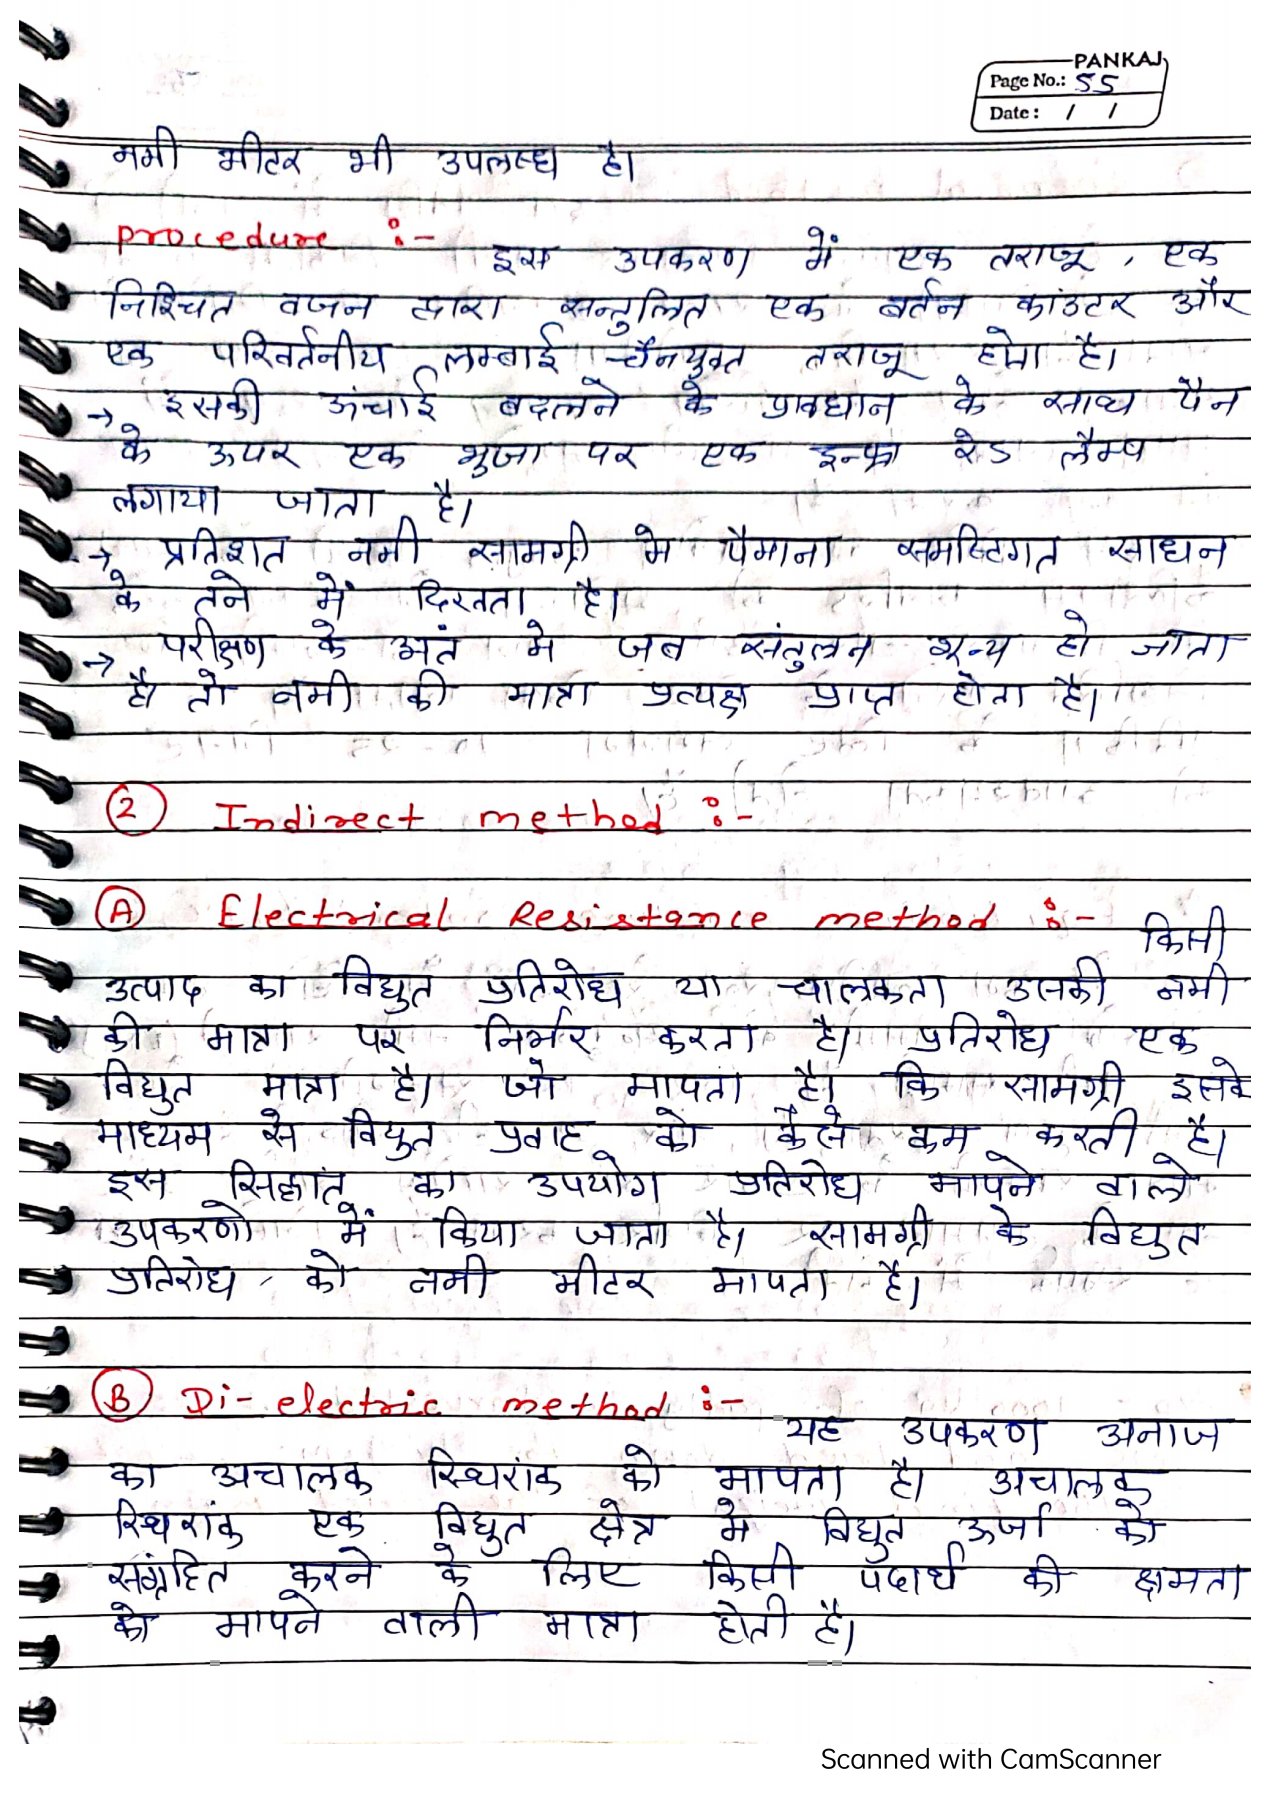 PANKAJ
Page No.: 55
Date : / /
नमी मीटर भी उपलब्ध है।
procedure :-
इस उपकरण में एक तराजू, एक
निश्चित वजन द्वारा सन्तुलित एक बर्तन कांउटर और
एक परिवर्तनीय लम्बाई चैनयुक्त तराजू होता है।
→ इसकी ऊंचाई बदलने के प्रावधान के साथ पैन
के ऊपर एक भुजा पर एक इन्फ्रा रेड लैम्प
लगाया जाता है।
→ प्रतिशत नमी सामग्री मे पैमाना समष्टिगत साधन
के तने में दिखता है।
→ परीक्षण के अंत मे जब संतुलन शून्य हो जाता
है। तो नमी की मात्रा प्रत्यक्ष प्राप्त होता है।
② Indirect method :-
Ⓐ Electrical Resistance method :-
किसी
उत्पाद का विद्युत प्रतिरोध या चालकता उसकी नमी
की मात्रा पर निर्भर करता है। प्रतिरोध एक
विद्युत मात्रा है। जो मापता है। कि सामग्री इसके
माध्यम से विद्युत प्रवाह को कैसे कम करती है।
इस सिद्धांत का उपयोग प्रतिरोध मापने वाले
उपकरणो में किया जाता है। सामग्री के विद्युत
प्रतिरोध को नमी मीटर मापता है।
Ⓑ Di-electric method :-
यह उपकरण अनाज
का अचालक स्थिरांक को मापता है। अचालक
स्थिरांक एक विद्युत क्षेत्र मे विद्युत ऊर्जा को
संग्रहित करने के लिए किसी पदार्थ की क्षमता
को मापने वाली मात्रा होती है।
Scanned with CamScanner